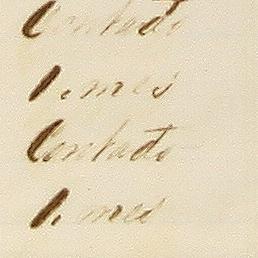 Contado
1. mes
Contado
1. mes